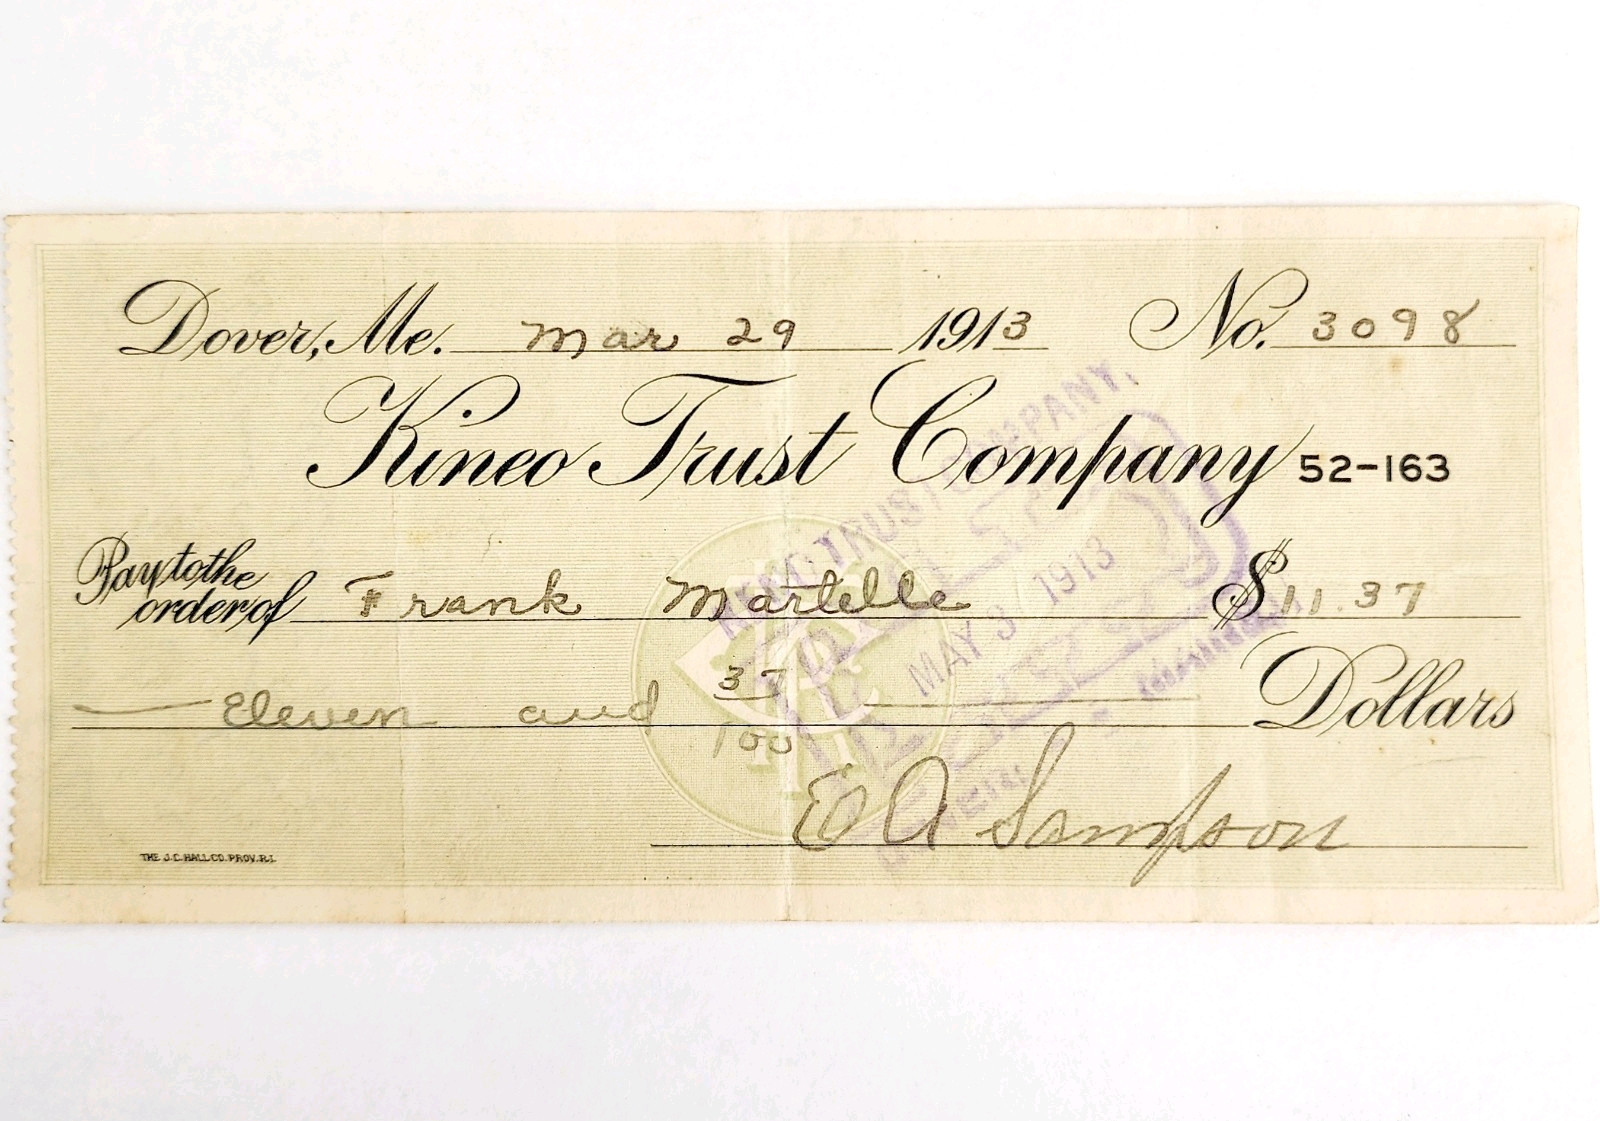 Dover, Me. Mar 29 1913 No. 3098
Kineo Trust Company 52-163
Pay to the order of Frank Martelle $ 11.37
Eleven and 37/100 Dollars
E A Sampson
THE J.C. HALL CO. PROV. R.I.
KINEO TRUST COMPANY,
MAY 3 1913